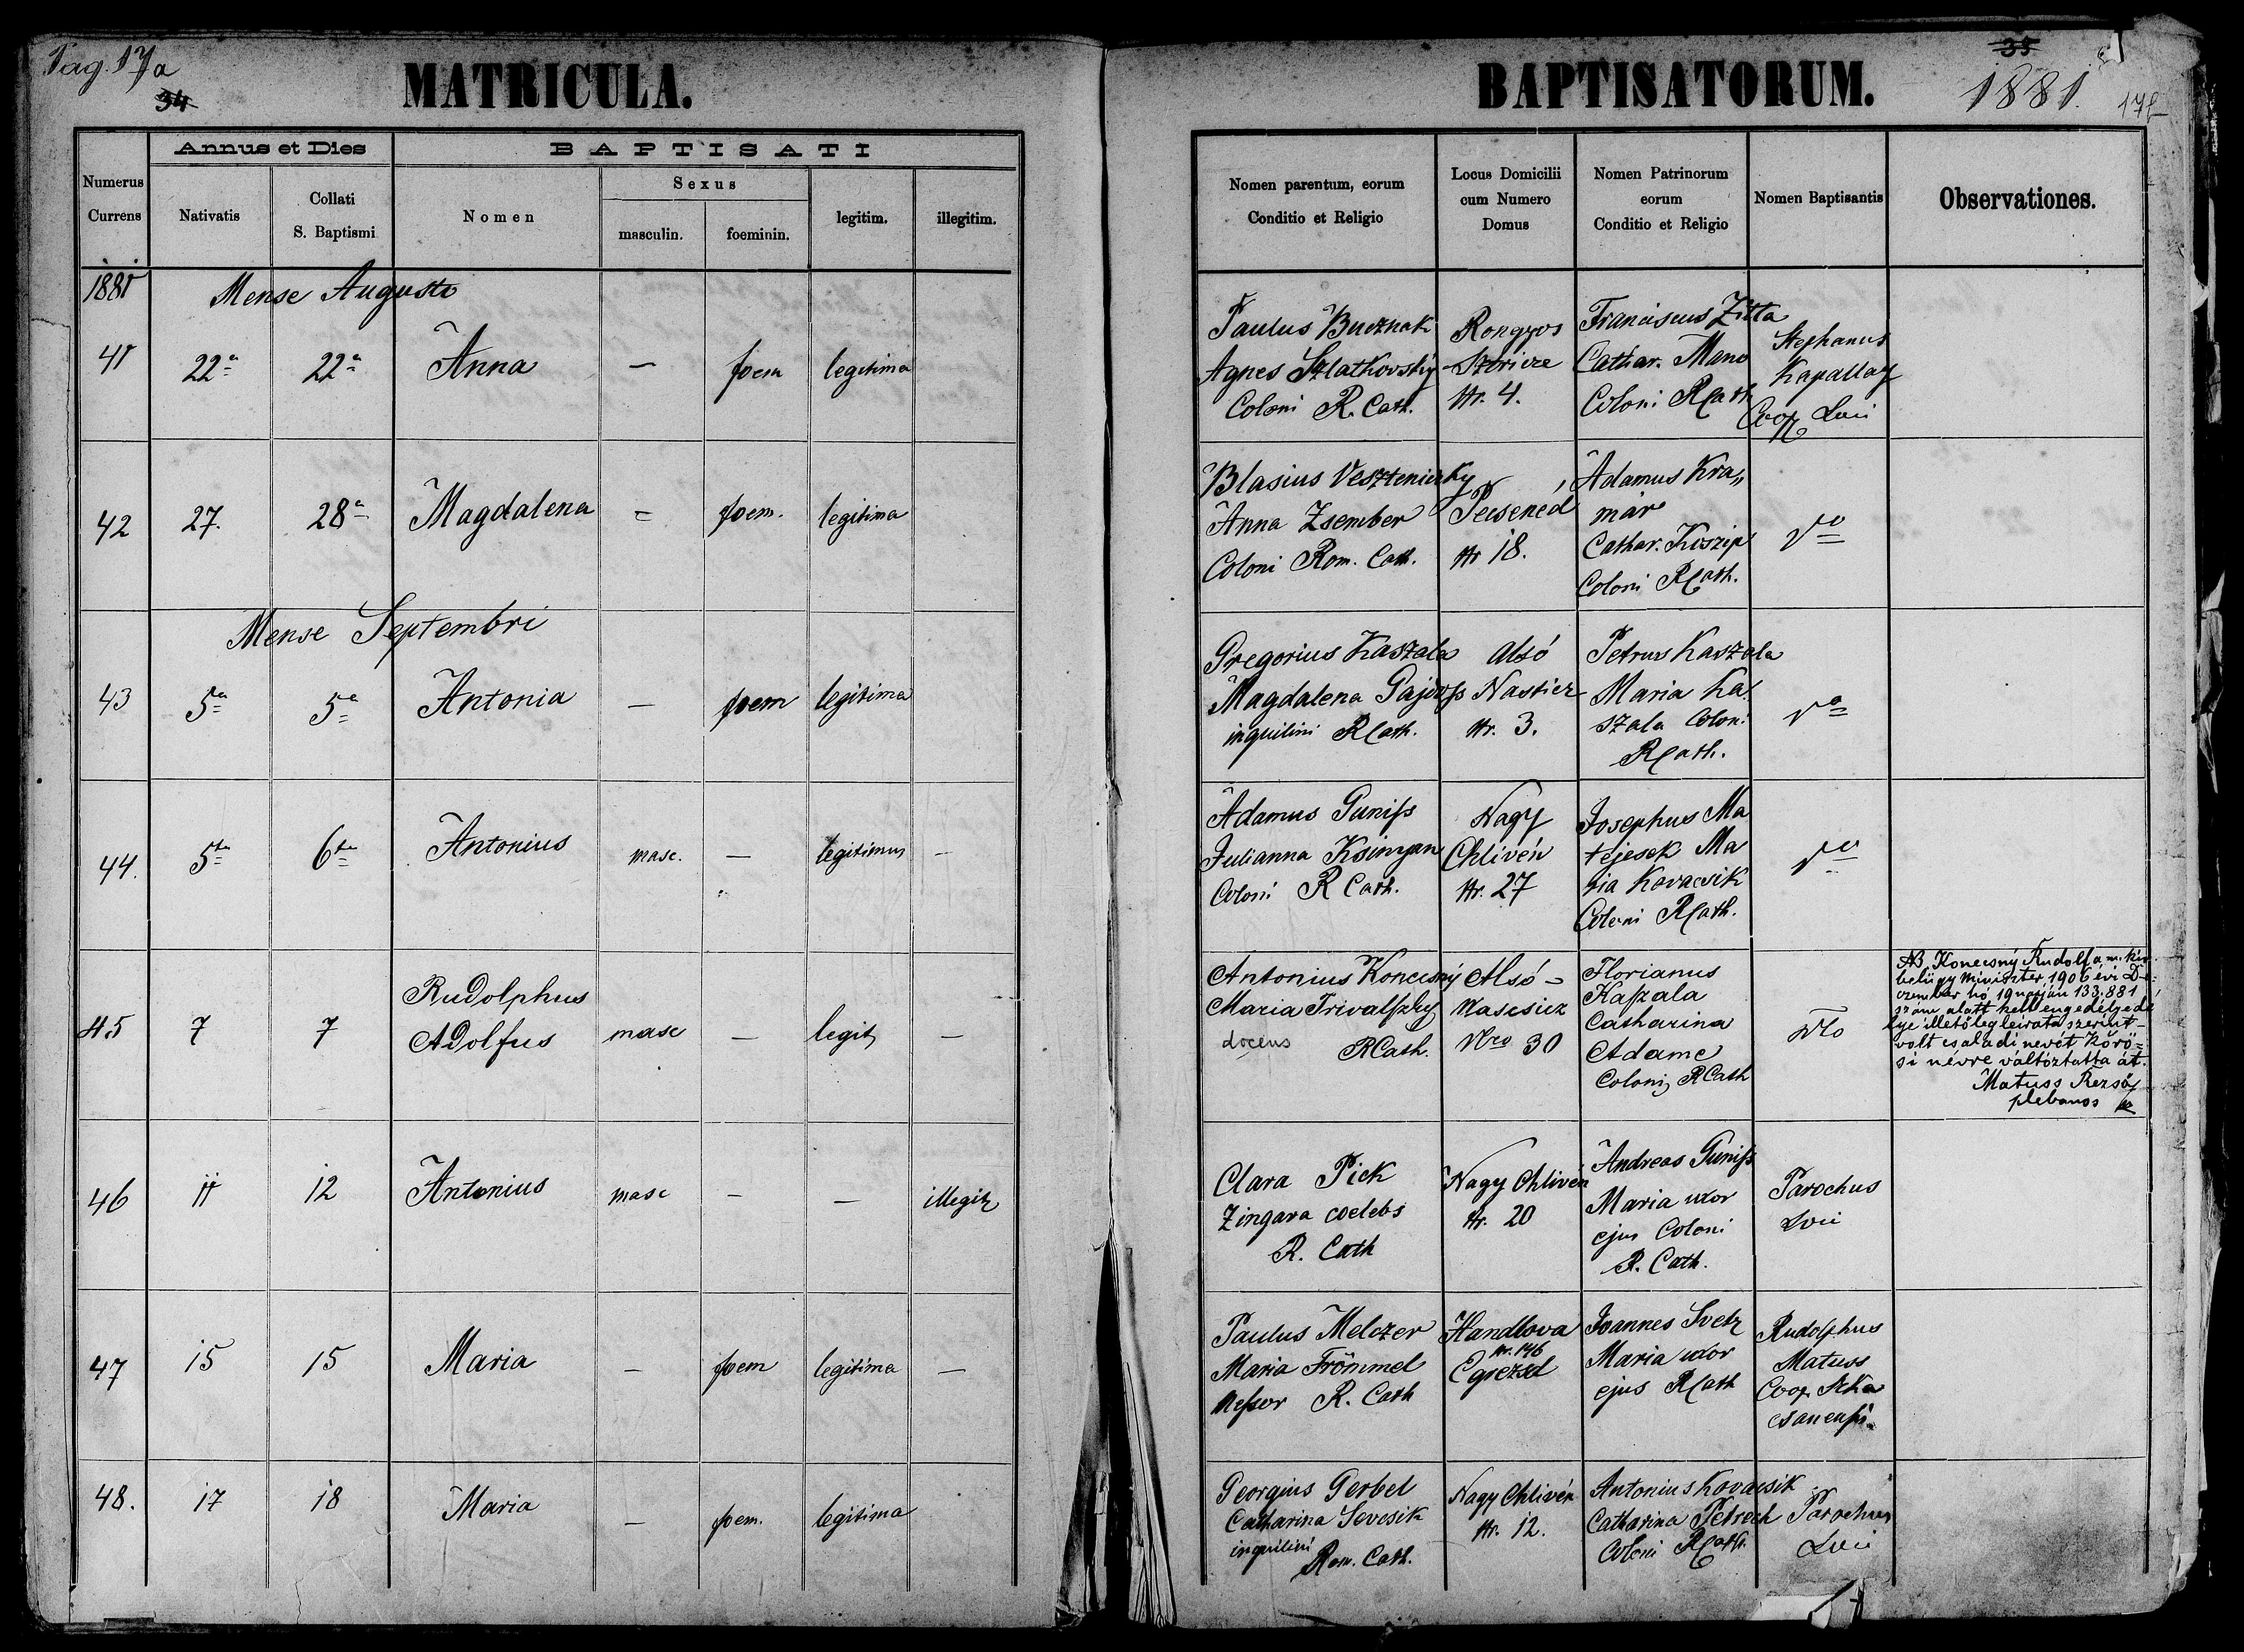 Pag. 17a
34
MATRICULA.
Numerus
Currens
Annus et Dies
Nativatis
Collati
S. Baptismi
BAPTISATI
Nomen
Sexus
masculin.
foeminin.
legitim.
illegitim.
1881
Mense Augusti
41 22a 22a Anna — foem legitima
42 27. 28a Magdalena = foem. legitima
Mense Septembri
43 5a 5a Antonia — foem legitima
44. 5ta 6ta Antonius masc. — legitimus —
45 7 7 Rudolphus
Adolfus masc — legit —
46 11 12 Antonius masc — — illegit
47 15 15 Maria — foem legitima —
48. 17 18 Maria — foem. legitima
35
BAPTISATORUM.
1881.
17b
Nomen parentum, eorum
Conditio et Religio
Locus Domicilii
cum Numero
Domus
Nomen Patrinorum
eorum
Conditio et Religio
Nomen Baptisantis
Observationes.
Paulus Bucznak
Agnes Szlatkovsky
Coloni R. Cath.
Rongyos
Sztricze
Nr. 4.
Franciscus Zitta
Cathar. Mano
Coloni RCath
Stephanus
Kapallay
Coop Loci
Blasius Veszteniczky
Anna Zsember
Coloni Rom. Cath.
Pecsenéd
Nr 18.
Adamus Kra„
már
Cathar. Koszip
Coloni RCath.
Gregorius Kaszala
Magdalena
inquilini RCath.
Alsó
Nasticz
Nr. 3.
Petrus Kaszala
Maria Ka/
szala Coloni
RCath.
Adamus Guniss
Julianna Ksinyan
Coloni R Cath.
Nagy
Chlivén
Nr. 27
Josephus Ma
tejesek Ma
ria Kovacsik
Coloni RCath.
Antonius Konecsný
Maria Trivalszky
docens RCath.
Alsó-
Nro 30
Florianus
Kaszala
Catharina
Adame
Coloni RCath
NB. Konecsný Rudolf a m. kir.
belügyminiszter 1906 évi De-
czember hó 19 napján 133,881
szám alatt kelt engedélyé
illetőleg leirata szerint
volt családi nevét Kőrö=
si névre változtatta át.
Matuss Rezső
plebanos
Clara Pick
Zingara coelebs
R. Cath
Nagy Chlivén
Nr. 20
Andreas Guniss
Maria uxor
ejus Coloni
R. Cath.
Parochus
Loci
Paulus Melczer
Maria Frömmel
Messor R. Cath
Handlova
Nr. 146
Egrezsd
Joannes Svetz
Maria uxor
ejus RCath
Rudolphus
Matuss
Coop Szka
csanensis
Georgius Gerbel
Catharina Sevcsik
inquilini
Rom. Cath.
Nagy Chlivén
Nr. 12.
Antonius Kovacsik
Catharina Petrech
Coloni RCath.
Parochus
Loci